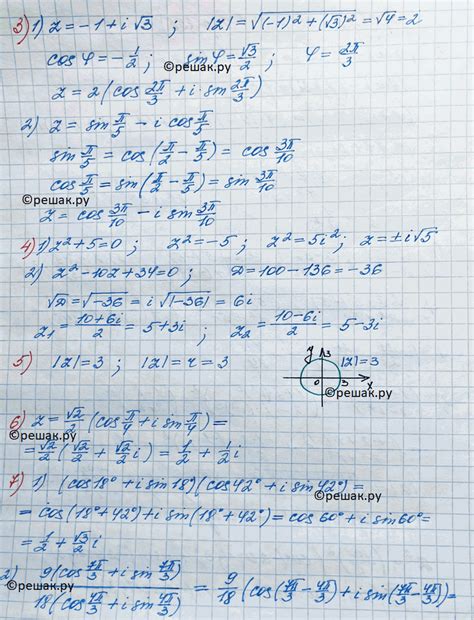 3) 1) z = -1 + i√3 ; |z| = √((-1)² + (√3)²) = √4 = 2
cos φ = -1/2 ; sin φ = √3/2 ; φ = 2π/3
©решак.ру
z = 2(cos 2π/3 + i sin 2π/3)
2) z = sin π/5 - i cos π/5
sin π/5 = cos(π/2 - π/5) = cos 3π/10
cos π/5 = sin(π/2 - π/5) = sin 3π/10
©решак.ру
z = cos 3π/10 - i sin 3π/10
4) 1) z² + 5 = 0 ; z² = -5 ; z² = 5i² ; z = ±i√5
2) z² - 10z + 34 = 0 ; D = 100 - 136 = -36
√D = √-36 = i√|-36| = 6i
z₁ = (10+6i)/2 = 5 + 3i ; z₂ = (10-6i)/2 = 5 - 3i
5) |z| = 3 ; |z| = r = 3
y 3 |z| = 3
0 3 x
©решак.ру
6) z = √2/2 (cos π/4 + i sin π/4) =
©решак.ру
= √2/2 (√2/2 + √2/2 i) = 1/2 + 1/2 i
7) 1) (cos 18° + i sin 18)(cos 42° + i sin 42°) =
©решак.ру
= cos(18° + 42°) + i sin(18° + 42°) = cos 60° + i sin 60° =
= 1/2 + √3/2 i
2) 9(cos 7π/3 + i sin 7π/3) / 18(cos 4π/3 + i sin 4π/3) = 9/18 (cos(7π/3 - 4π/3) + i sin(7π/3 - 4π/3)) =
©решак.ру